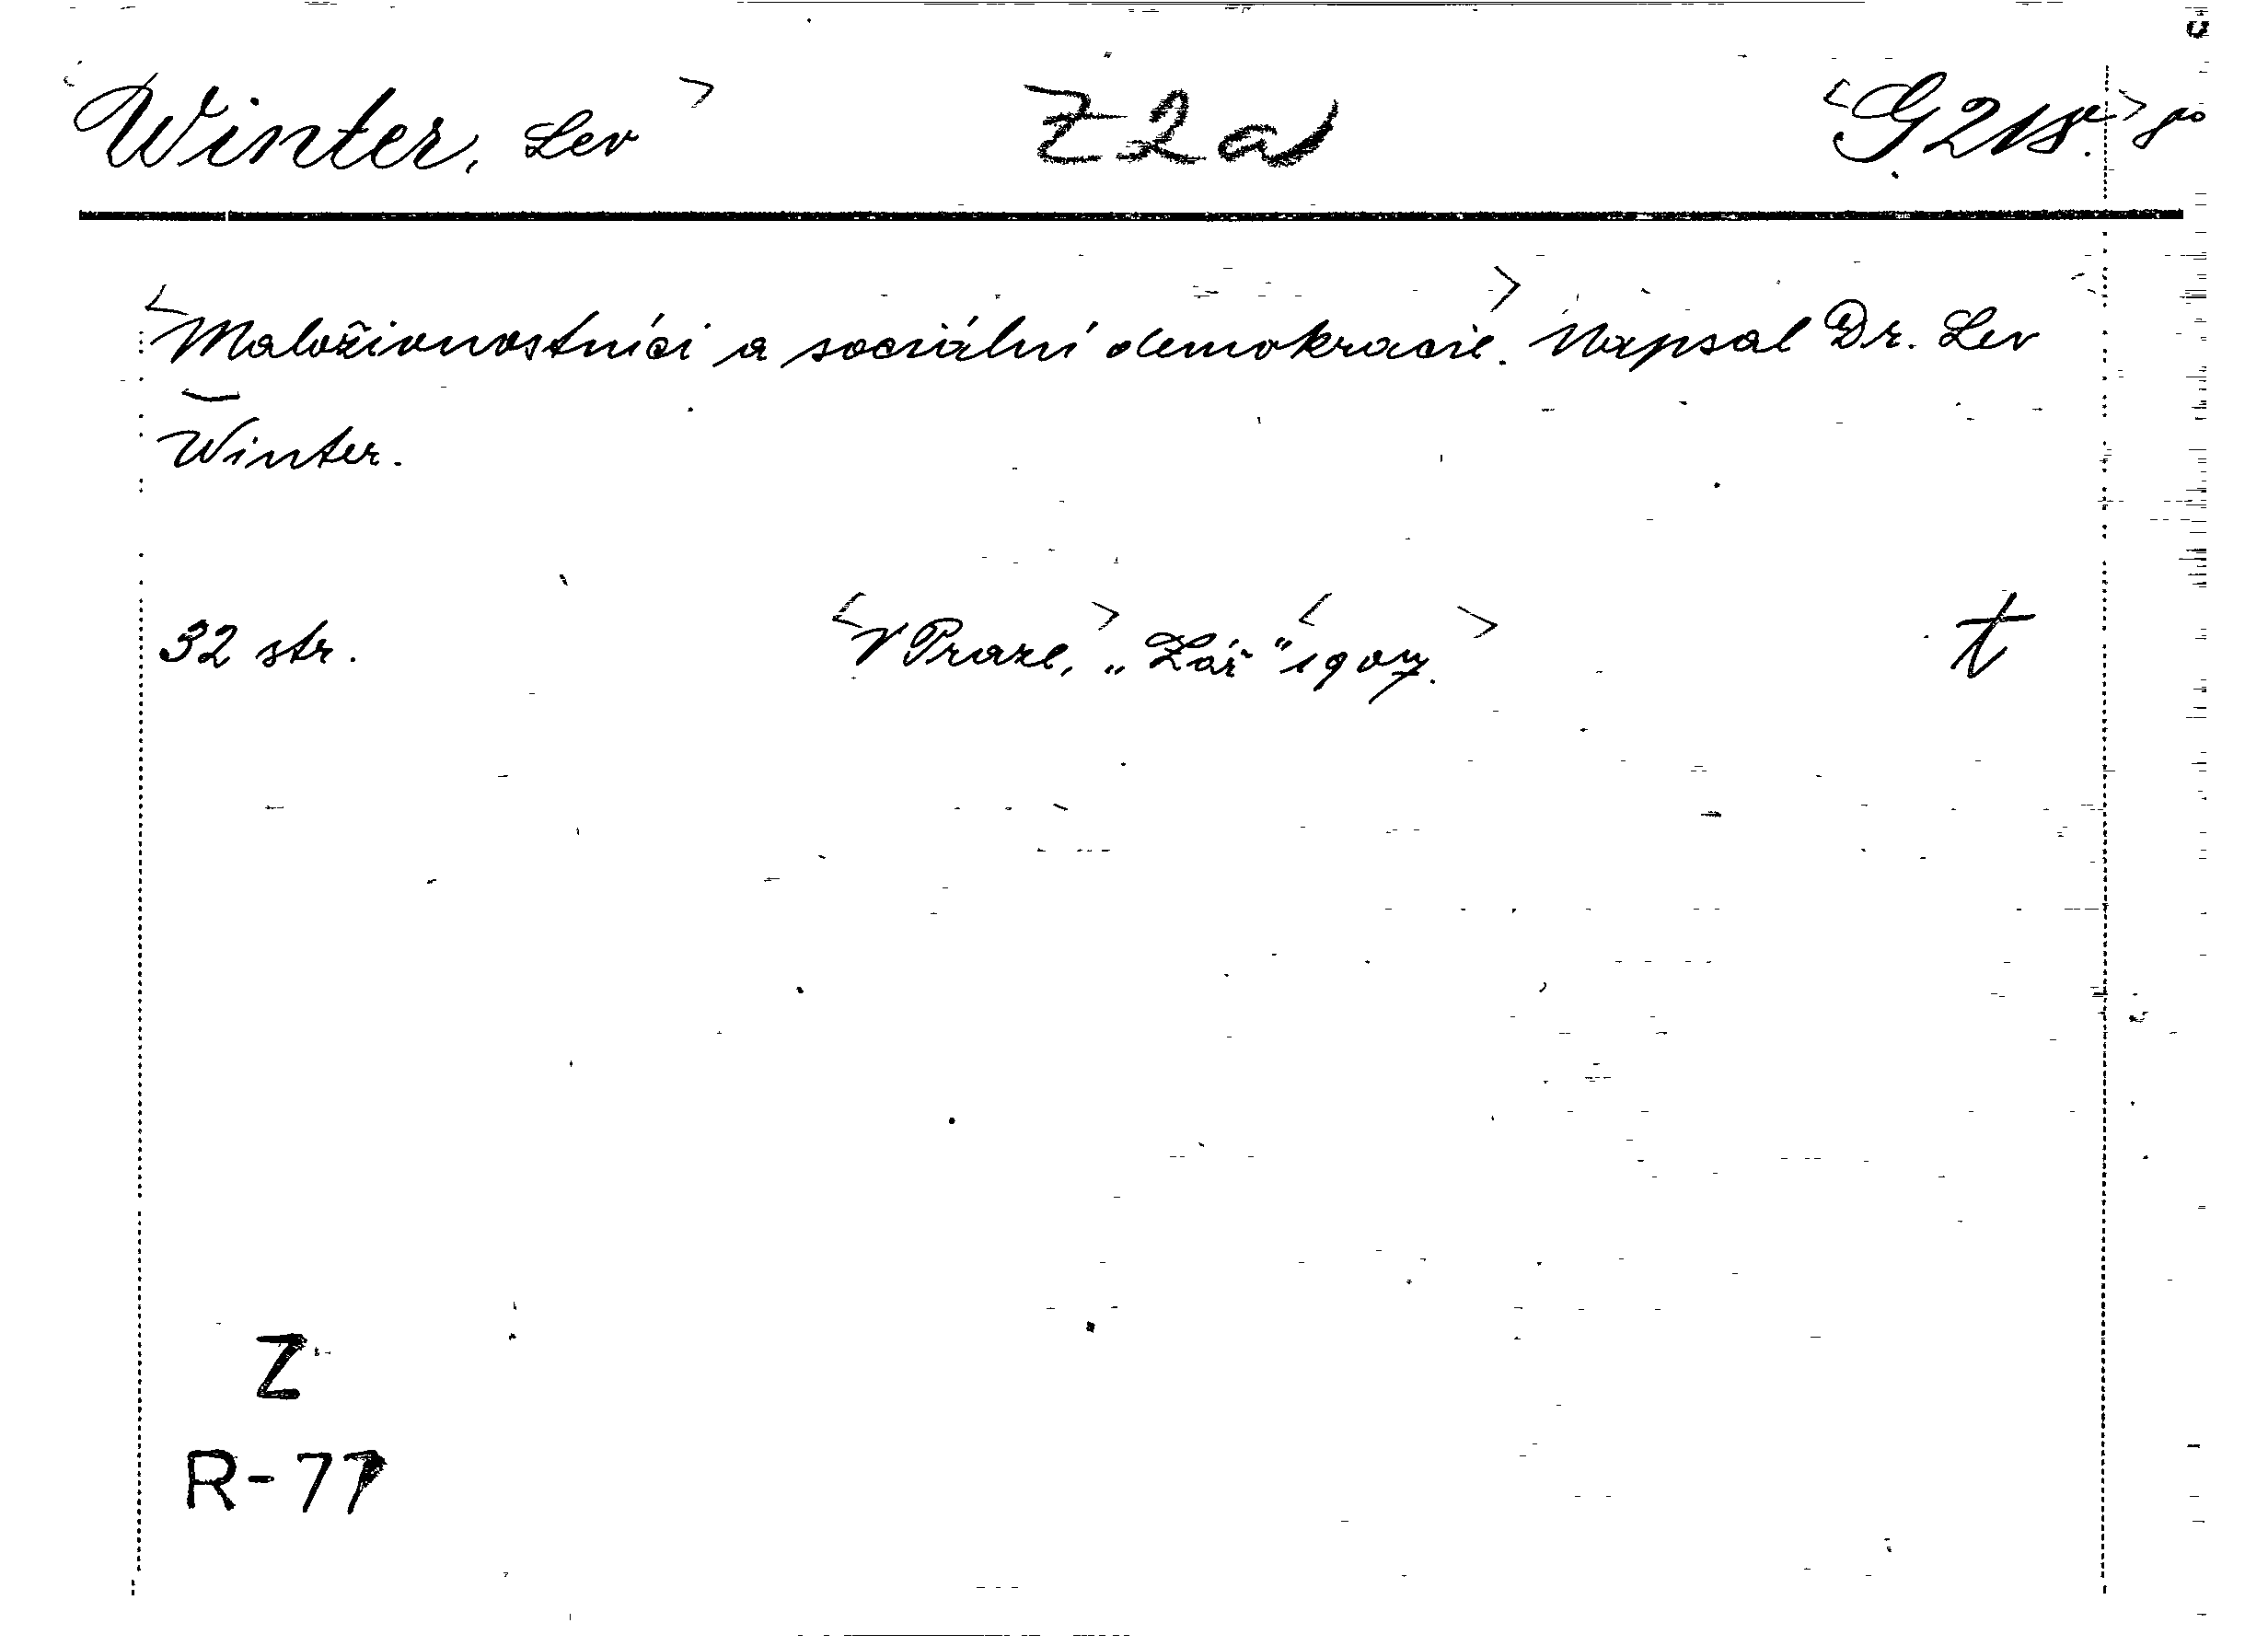 Winter, Lev Z 2 a
Maloživnostníci a sociální demokracie. Napsal Dr. Lev
Winter.
32 str. V Praze, „Zář" 1907. t
Z
R-77